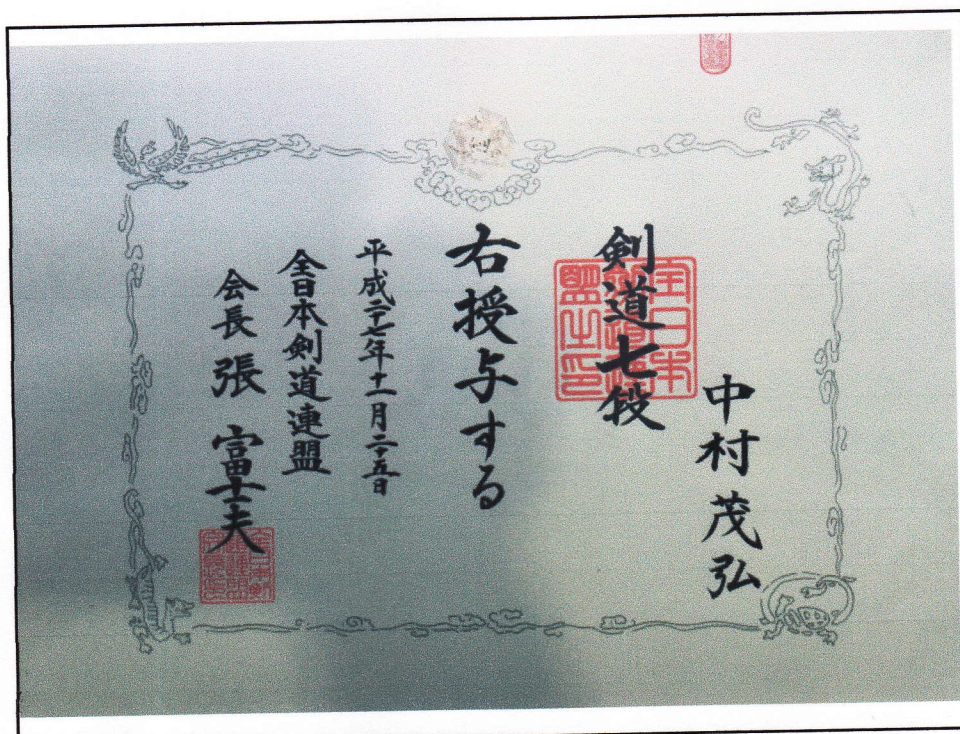 中村茂弘
剣道七段
右授与する
平成二十七年十一月二十五日
全日本剣道連盟
会長 張 富士夫